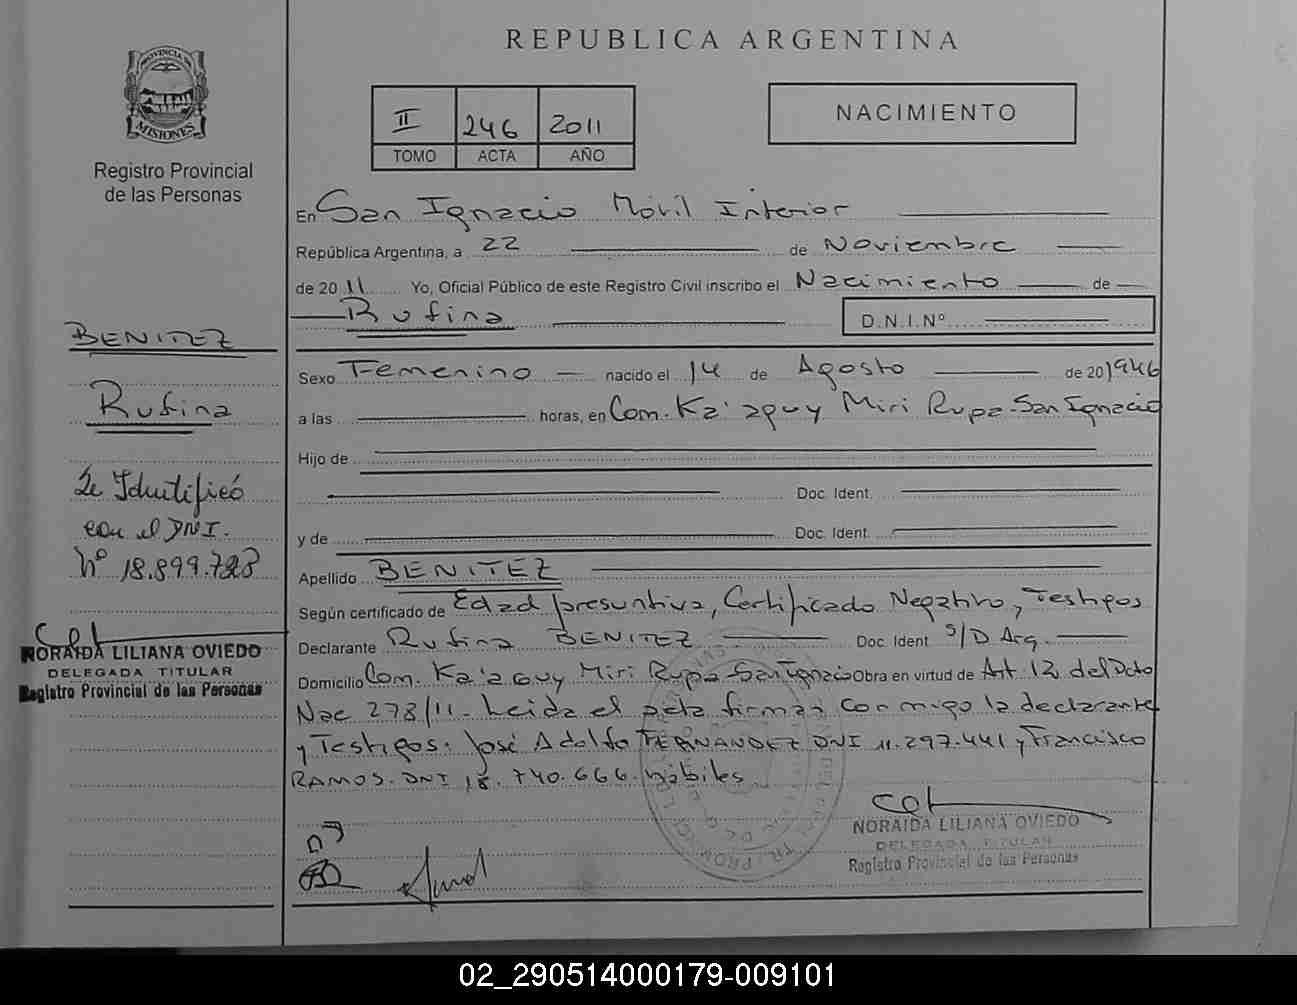 REPUBLICA ARGENTINA
PROVINCIA DE
MISIONES
Registro Provincial
de las Personas
II 246 2011
TOMO ACTA AÑO
NACIMIENTO
En San Ignacio Móvil Interior
República Argentina, a 22 de Noviembre
de 2011 Yo, Oficial Público de este Registro Civil inscribo el Nacimiento de
Rufina D.N.I. Nº
Sexo Femenino nacido el 14 de Agosto de 201946
a las horas, en Com. Ka'aguy Miri Rupa-San Ignacio
Hijo de
Doc. Ident.
y de Doc. Ident.
Apellido BENITEZ
Según certificado de Edad presuntiva, Certificado Negativo, Testigos
Declarante Rufina BENITEZ Doc. Ident S/D Arg.
Domicilio Com. Ka'aguy Miri Rupa-San Ignacio Obra en virtud de Art 12 del Dcto
Nac 278/11. Leida el acta firman conmigo la declarante
y Testigos: José Adolfo FERNANDEZ DNI 11.297.441 y Francisco
RAMOS. DNI 18.740.666. hábiles
NORAIDA LILIANA OVIEDO
DELEGADA TITULAR
Registro Provincial de las Personas
BENITEZ
Rufina
Se Identificó
con el DNI.
Nº 18.899.728
NORAIDA LILIANA OVIEDO
DELEGADA TITULAR
Registro Provincial de las Personas
02_290514000179-009101